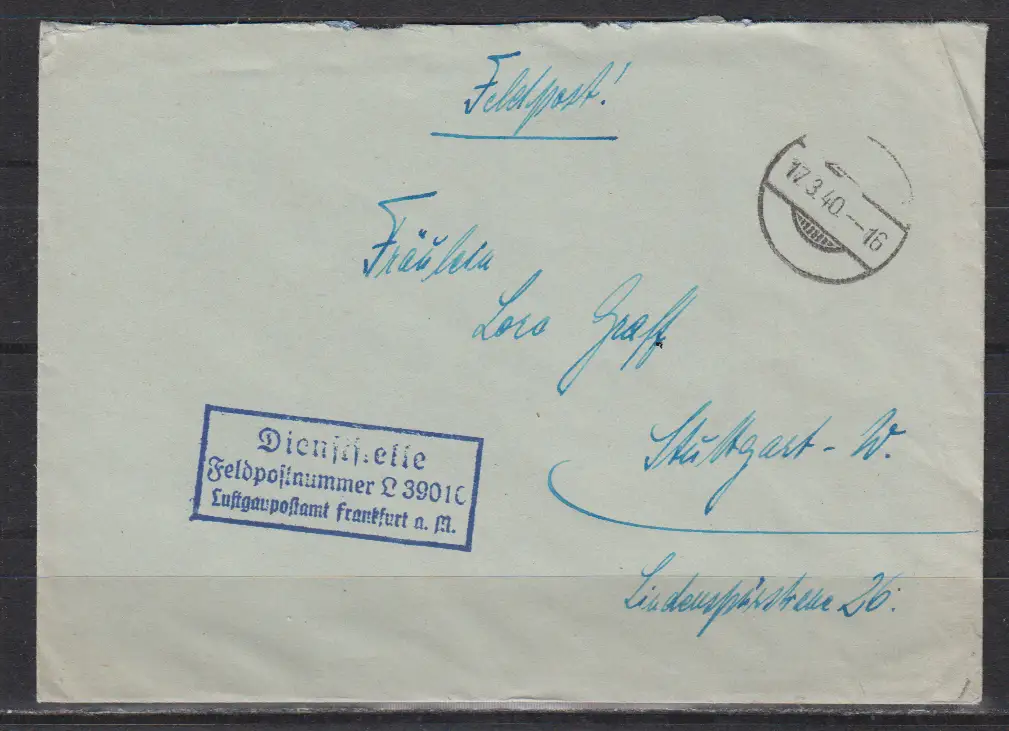 Feldpost!
17.3.40.--16
Fräulein
Lore Graff
Stuttgart-W.
Dienststelle
Feldpostnummer L 39010
Luftgaupostamt Frankfurt a. M.
Lindenspürstrasse 26.